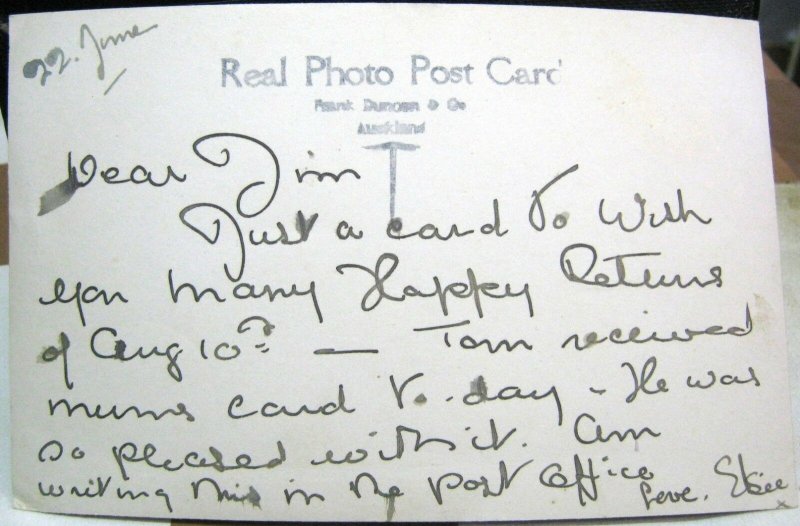 22. June
Real Photo Post Card
Frank Duncan & Co
Auckland
Dear Jim
Just a card to wish
you many Happy Returns
of Aug 10th — Tom received
mums card to-day - He was
so pleased with it. Am
writing this in the post office
Love. Elsie